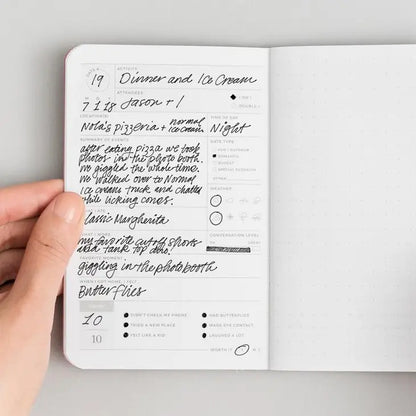 DATE #
19
ACTIVITY
Dinner and Ice Cream
ATTENDEES
M D Y
7 1 18
Jason + I
1 ON 1
DOUBLE +
LOCATION(S)
Nola's pizzeria + normal ice cream
TIME OF DAY
Night
SUMMARY OF EVENTS
after eating pizza we took
photos in the photo booth.
We giggled the whole time.
We walked over to Normal
Ice cream truck and chatted
while licking cones.
DATE TYPE
FUN / OUTDOOR
ROMANTIC
SUNSET
SPECIAL OCCASION
OTHER
WEATHER
I ATE
Classic Margherita
WHAT I WORE
my favorite cutoff shorts
and a tank top duh!
CONVERSATION LEVEL
FAVORITE MOMENT
giggling in the photo booth
WHEN I GOT HOME, I FELT
Butterflies
10
10
DIDN'T CHECK MY PHONE
TRIED A NEW PLACE
FELT LIKE A KID
HAD BUTTERFLIES
MADE EYE CONTACT
LAUGHED A LOT
WORTH IT
Y N ?